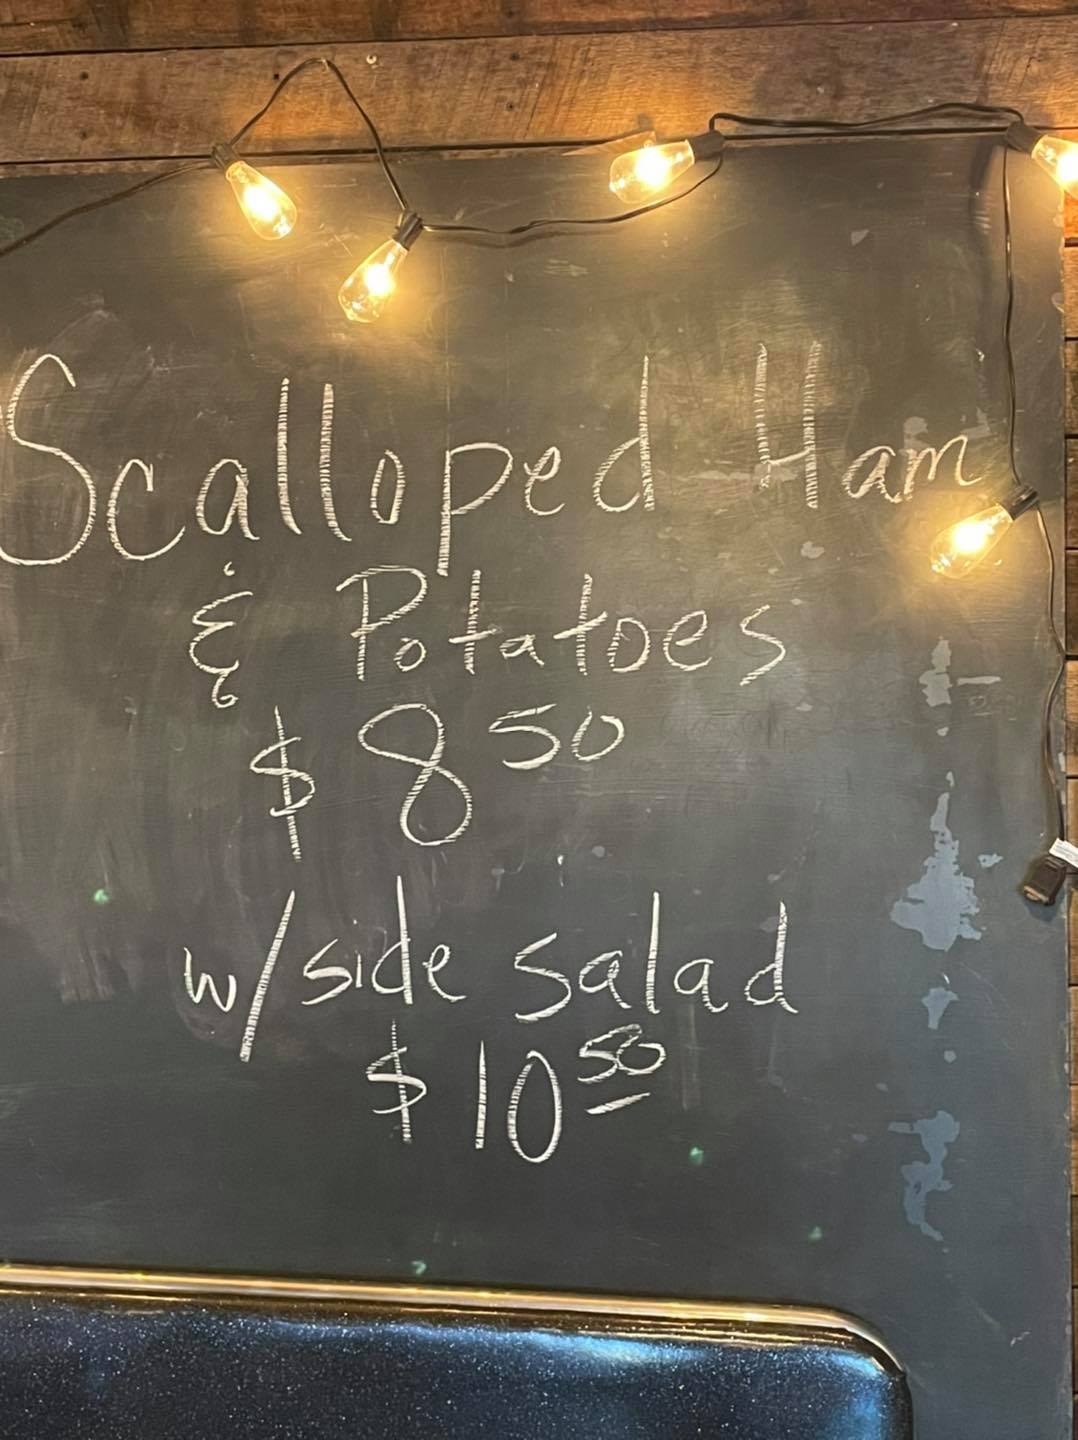 Scalloped Ham
& Potatoes
$8.50
w/ side salad
$10.50